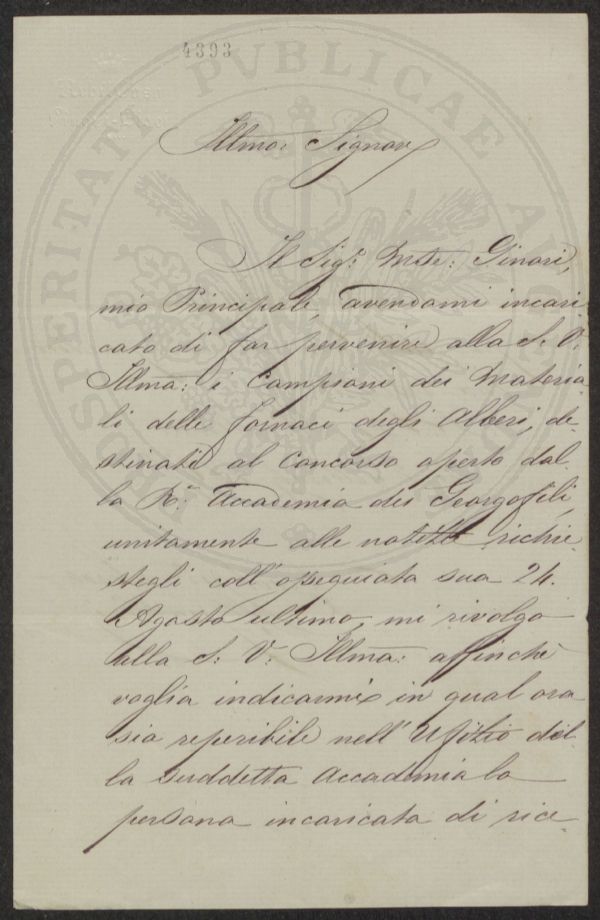 4393
PROSPERITATI PVBLICAE AVGENDAE
Illmo: Signor
Il Sigr: Mse: Ginori,
mio Principale, avendomi incari
cato di far pervenire alla S. V.
Illma: i Campioni dei Materia
li delle fornaci degli Alberi, de-
stinati al Concorso aperto dal-
la Ra: Accademia dei Georgofili,
unitamente alle notizie richie-
stegli coll' ossequiata sua 24.
Agosto ultimo, mi rivolgo
alla S. V. Illma: affinchè
voglia indicarmi in qual ora
sia reperibile nell' Ufizio del-
la suddetta Accademia la
persona incaricata di rice-